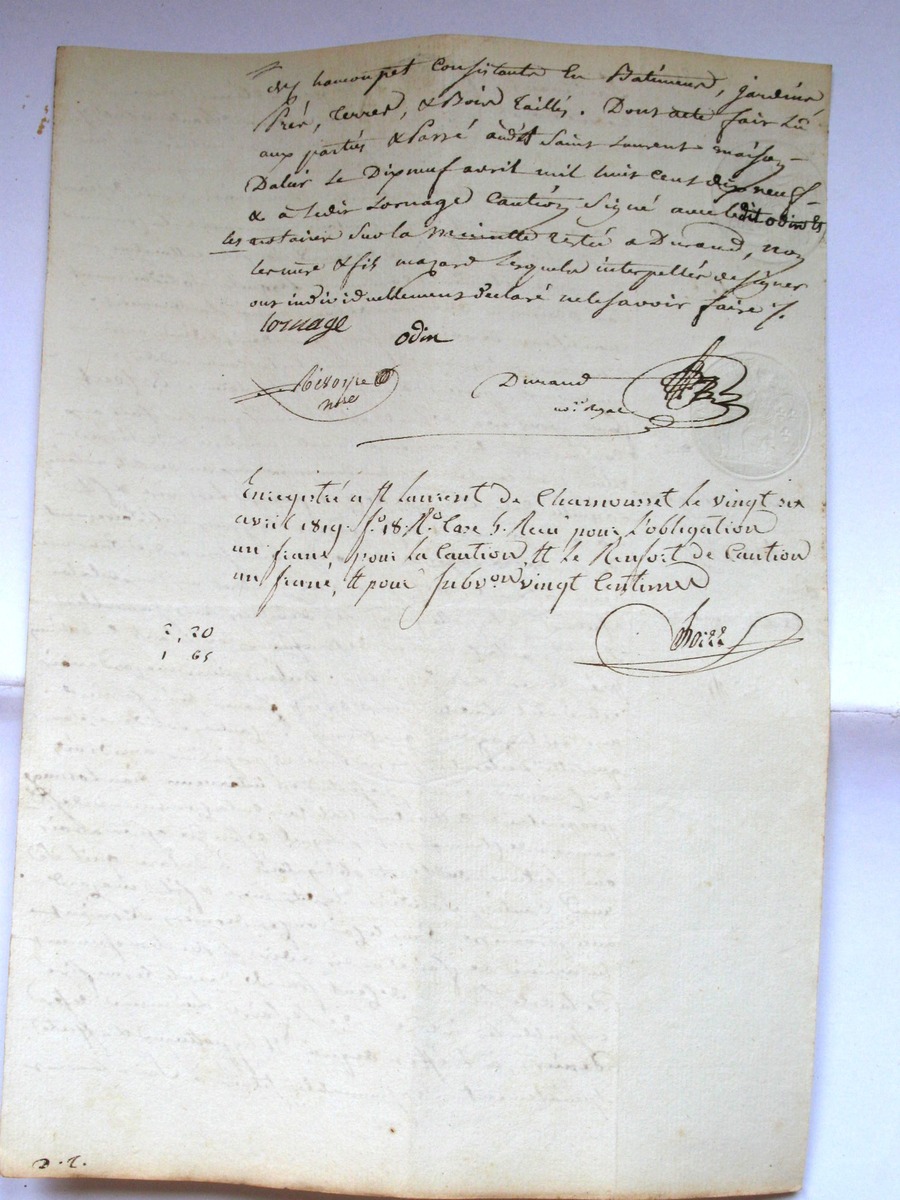 consistante en Batiment, jardins
Prés, terres, & Bois Taillis. Dont acte fair Lu
aux parties & Passé audit Saint Laurent maison
Dalur Le Dixneuf avril mil huit cent dixneuf
& a ledit Lornage Caution Signé avec ledit odin &
les notaires Sur la Minutte restée a Durand, non
les mere & fils mazard Lesquels interpellés de signer
ont individuellement declaré ne le savoir faire /.
Lornage
odin
nore
Durand
nore Royal
Enregistré a St Laurent de Chamousset le vingt six
avril 1819. fo 18. Ro Case 5. Recu pour l'obligation
un franc, pour la Caution, et le Renfort de Caution
un franc, et pour Subvon vingt Centimes
2, 20
1 65